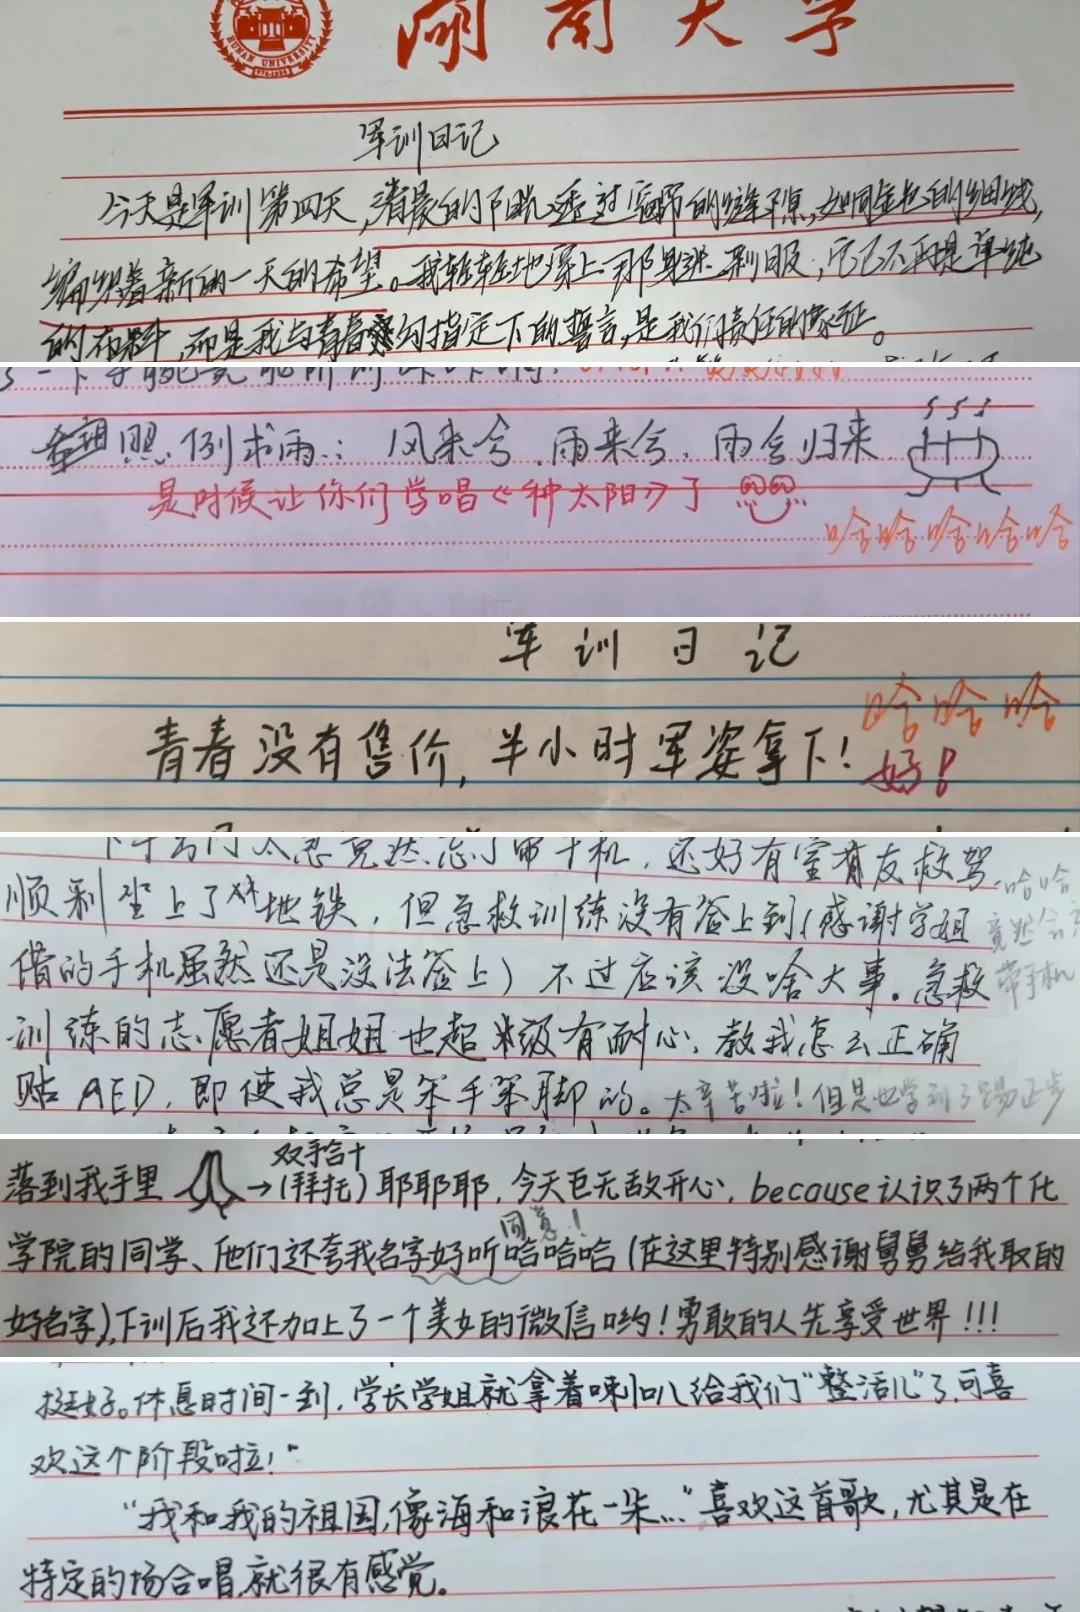 湖南大学
HUNAN UNIVERSITY
军训日记
今天是军训第四天，清晨的阳光透过窗帘的缝隙，如同金色的细线，
编织着新的一天的希望。我轻轻地穿上那身迷彩服，它已不再是单纯
的布料，而是我与青春勾指定下的誓言，是我们责任的象征。
照例求雨：风来兮，雨来兮，雨兮归来
是时候让你们学唱《种太阳》了
哈哈哈哈哈
军训日记
哈哈哈
青春没有售价，半小时军姿拿下！
好！
还好有室友救驾，
顺利坐上了地铁，但急救训练没有签上到（感谢学姐
哈哈
竟然会忘
借的手机虽然还是没法签上）不过应该没啥大事。急救
带手机
训练的志愿者姐姐也超级有耐心，教我怎么正确
贴AED，即使我总是笨手笨脚的。
太辛苦啦！但是也学到了踢正步
双手合十
落到我手里→（拜托）耶耶耶，今天巨无敌开心，because认识了两个化
同意！
学院的同学、他们还夸我名字好听哈哈哈（在这里特别感谢舅舅给我取的
好名字），下训后我还加上了一个美女的微信哟！勇敢的人先享受世界！！！
挺好。休息时间一到，学长学姐就拿着喇叭给我们“整活儿”了，可喜
欢这个阶段啦！”
“我和我的祖国，像海和浪花一朵…”喜欢这首歌，尤其是在
特定的场合唱，就很有感觉。